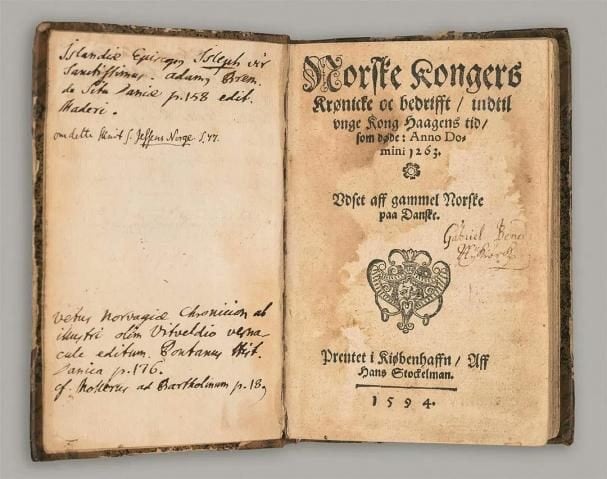 Islandiæ Episcop. Isleph vir
Sanctissimus. adam. Brem.
de Situ Daniæ p. 158 edit.
Maderi.
om dette Skrift s. Jessens Norge S. 47.
Vetus Norvagiæ Chronicion ab
illustri olim Vitveldio verna
cule editum. Pontanus Hist.
Danica p. 176.
cf. Mollerus ad Bartholinum p. 18
Norske Kongers
Krønicke oc bedrifft / indtil
vnge Kong Haagens tid /
som døde: Anno Do-
mini 1263.
Vdset aff gammel Norske
paa Danske.
Gabriel
Prentet i Kiøbenhaffn / Aff
Hans Stockelman.
1594.